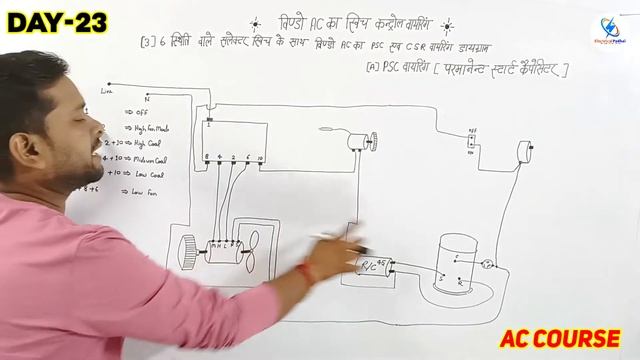 DAY-23
विण्डो AC का स्विच कन्ट्रोल वायरिंग
[3] 6 स्थिति वाले सलेक्टर स्विच के साथ विण्डो AC का PSC एवं CSR वायरिंग डायग्राम
[A] PSC वायरिंग [ परमानेन्ट स्टार्ट कैपेसिटर ]
Line
N
1
⇒ OFF
⇒ High Fan Mode
2+10 ⇒ High Cool
4+10 ⇒ Midium Cool
+10 ⇒ Low Cool
+8+6 ⇒ Low Fan
8 4 2 6 10
OFF
ON
M H L
R/C 45
C
S R
AC COURSE